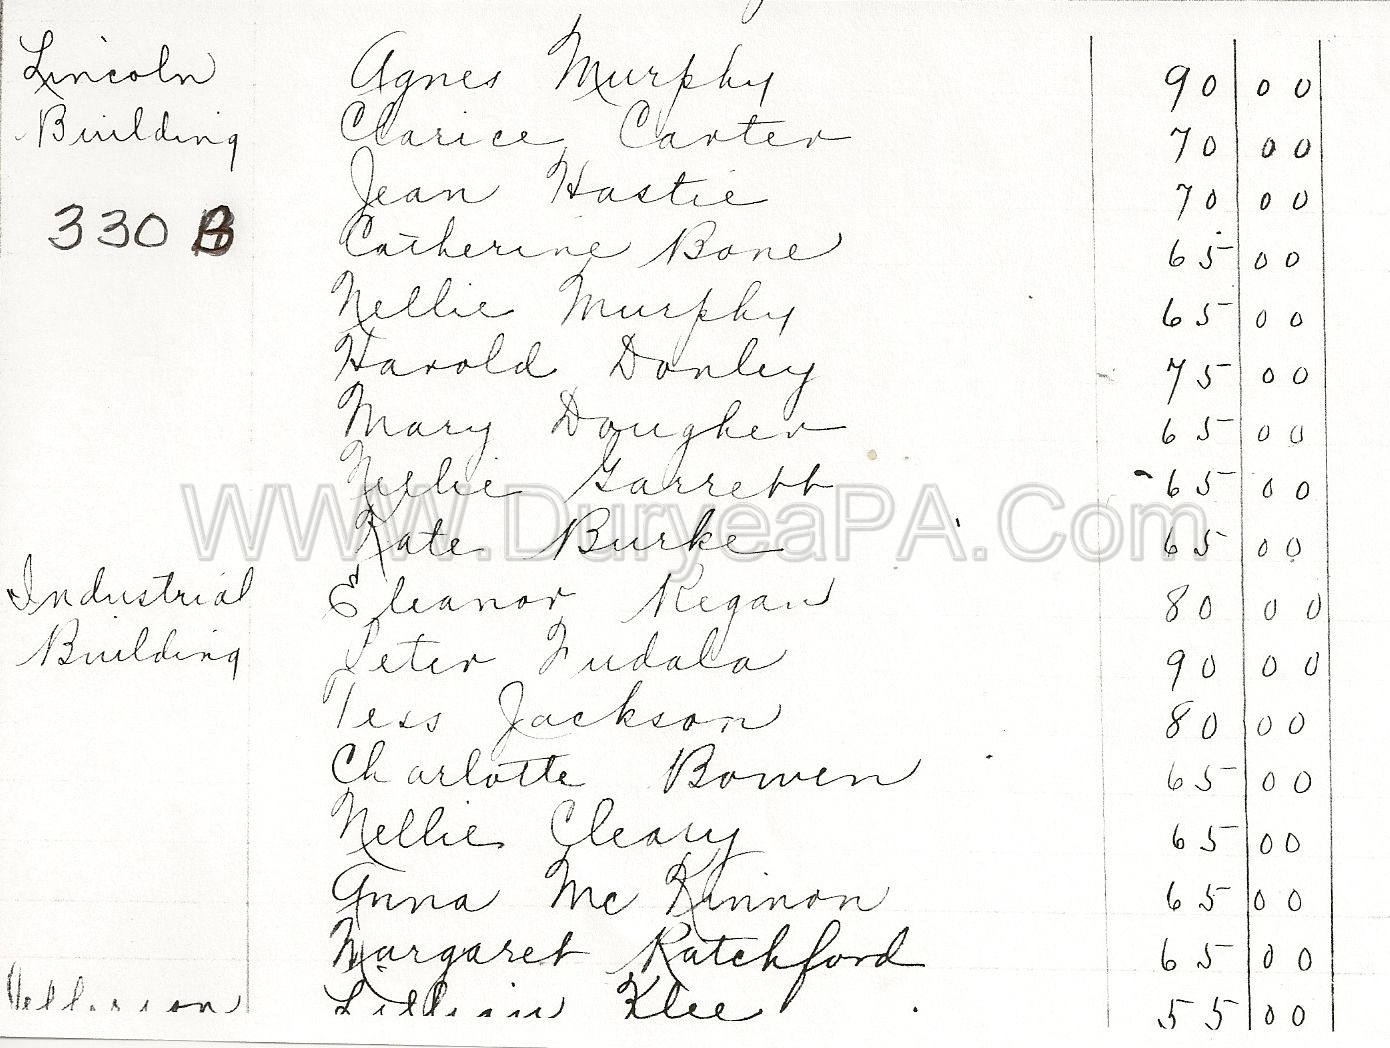 Lincoln Agnes Murphy 90 00
Building Clarice Carter 70 00
Jean Hastie 70 00
330 B Catherine Bone 65 00
Nellie Murphy 65 00
Harold Donley 75 00
Mary Dougher 65 00
Nellie Garrett 65 00
WWW.DuryeaPA.Com
Kate Burke 65 00
Industrial Eleanor Regan 80 00
Building Peter Fudala 90 00
Tess Jackson 80 00
Charlotte Bowen 65 00
Nellie Cleary 65 00
Anna McKinnon 65 00
Margaret Ratchford 65 00
Lillian Klee 55 00